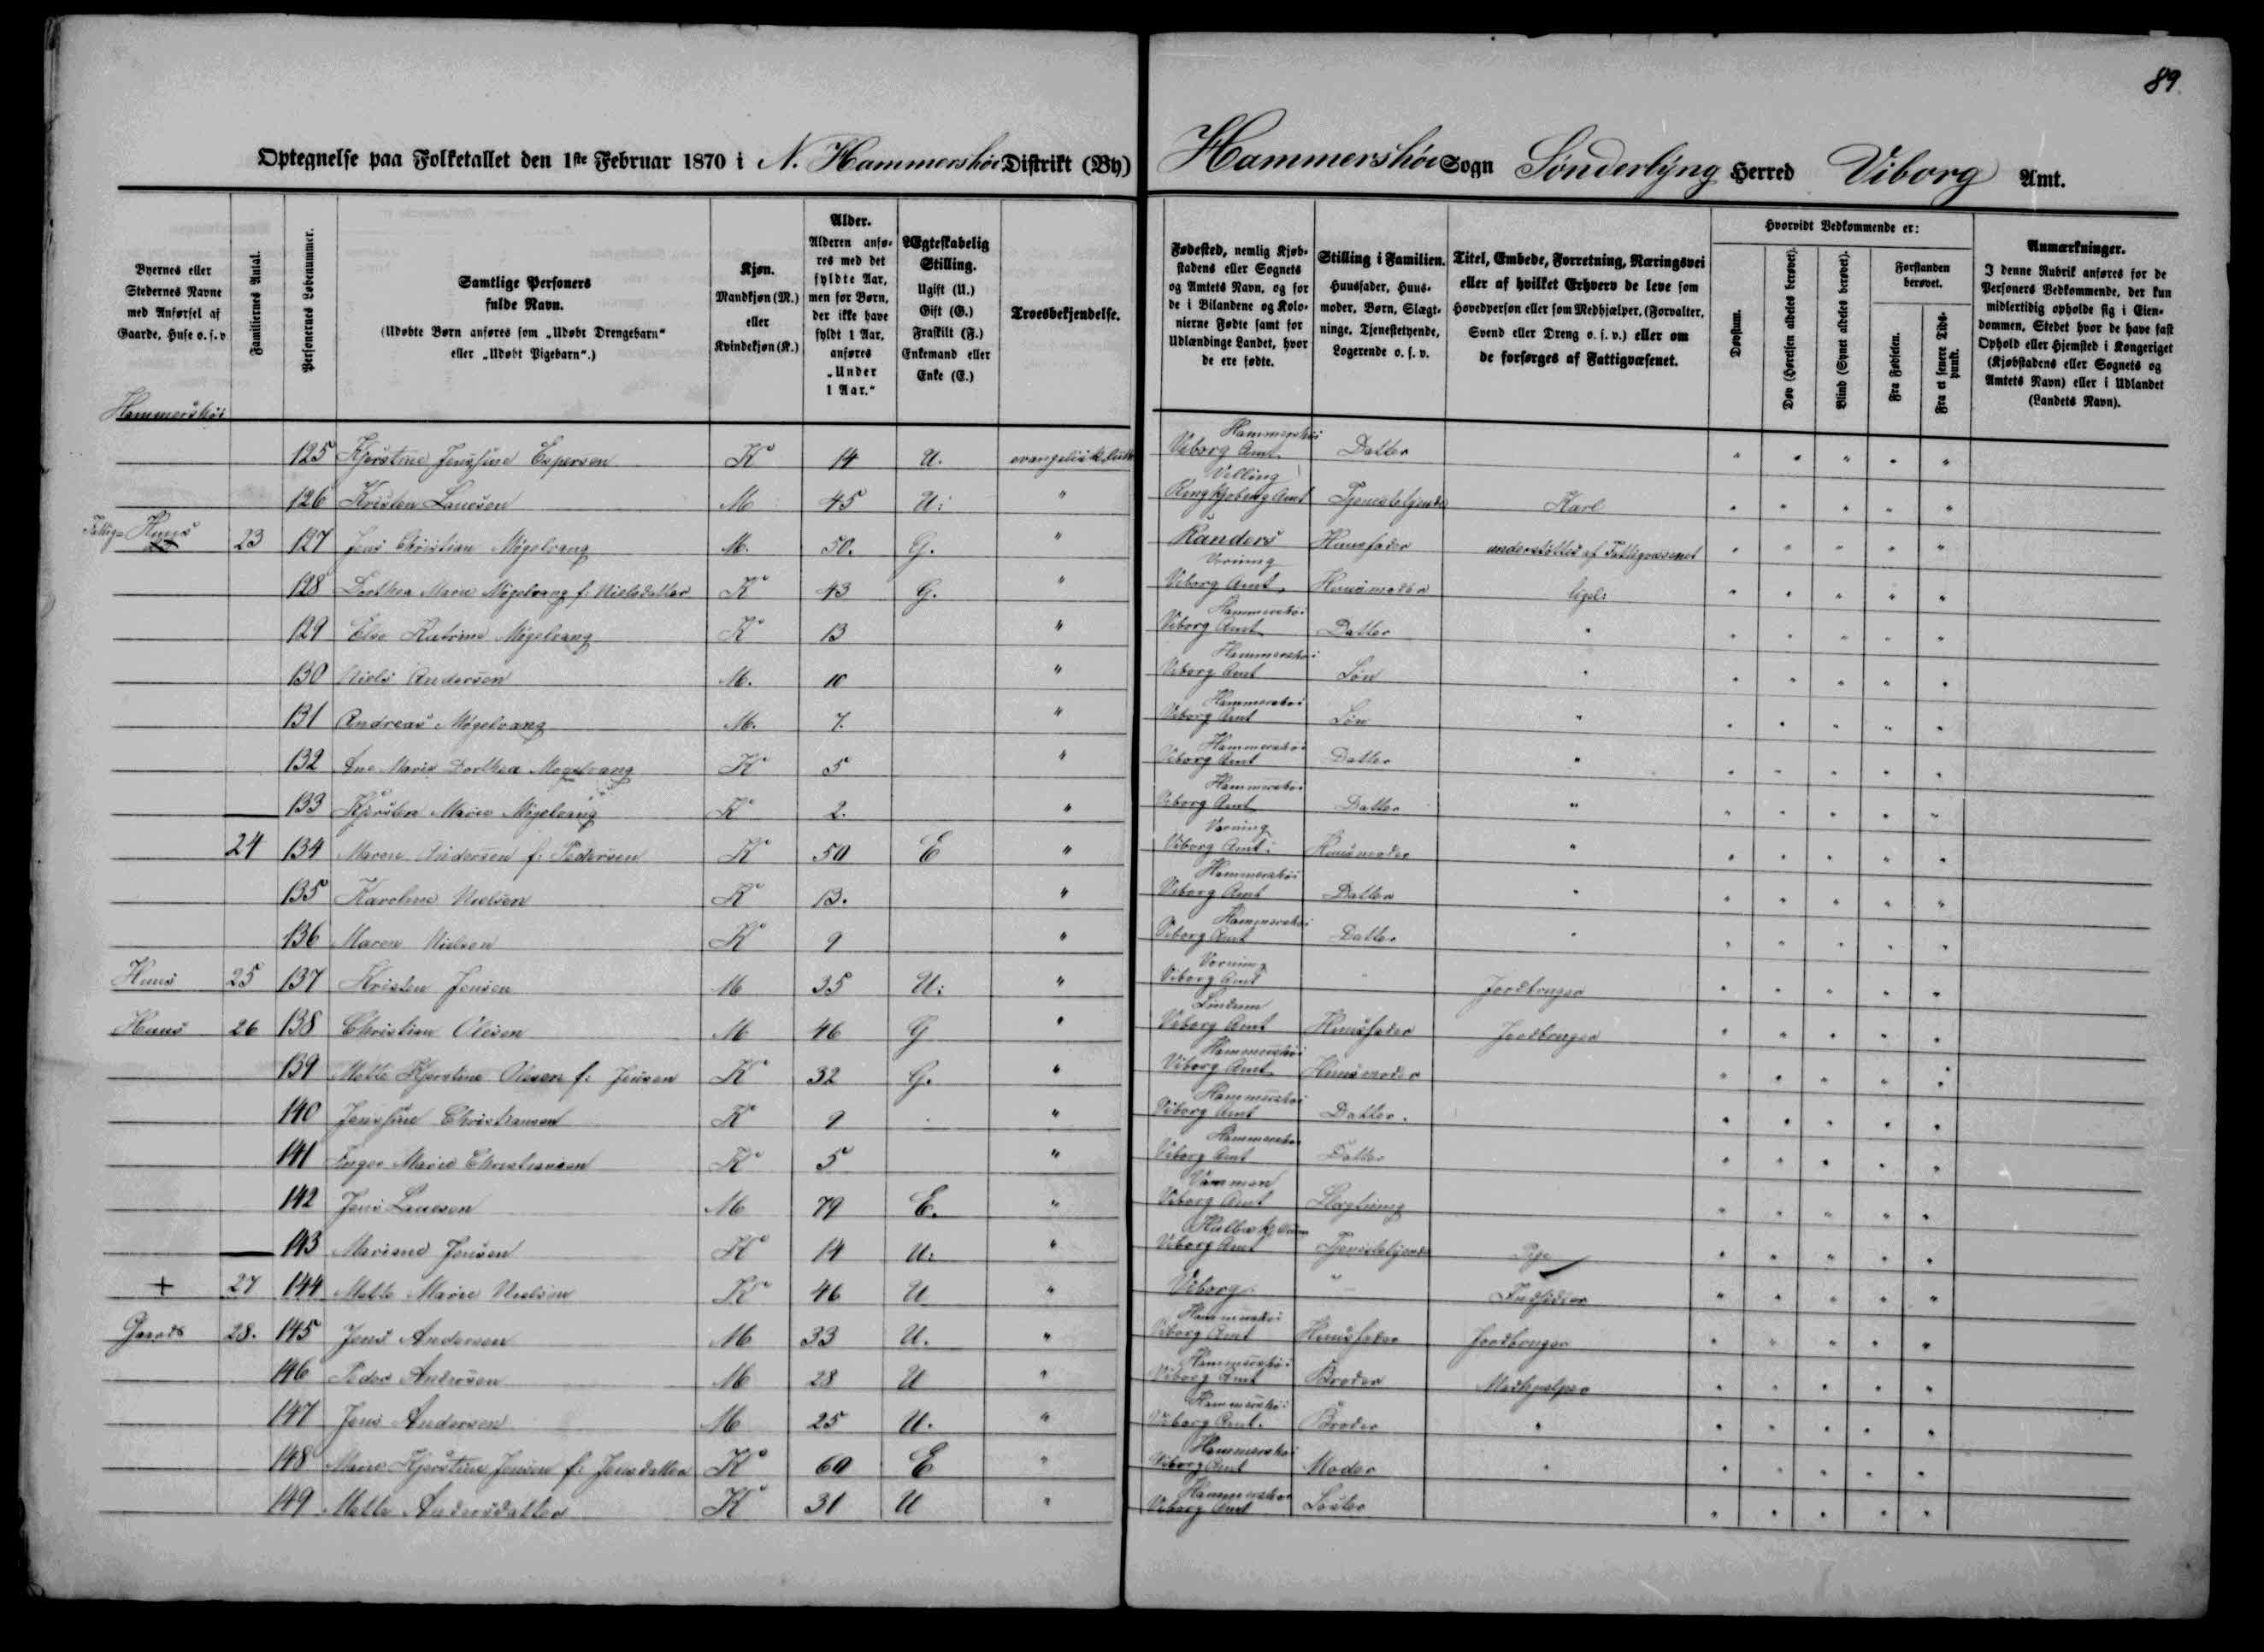 89.
Optegnelse paa Folketallet den 1ste Februar 1870 i N. Hammershøi Distrikt (By) Hammershøi Sogn Sønderlyng Herred Viborg Amt.
Byernes eller Stedernes Navne med Anførsel af Gaarde, Huse o. s. v.
Familiernes Antal.
Personernes Løbenummer.
Samtlige Personers fulde Navn.
(Udøbte Børn anføres som „Udøbt Drengebarn“ eller „Udøbt Pigebarn“.)
Kjøn.
Mandkjøn (M.) eller Kvindekjøn (K.)
Alder.
Alderen anføres med det fyldte Aar, men for Børn, der ikke have fyldt 1 Aar, anføres „Under 1 Aar.“
Ægteskabelig Stilling.
Ugift (U.) Gift (G.) Fraskilt (F.) Enkemand eller Enke (E.)
Troesbekjendelse.
Fødested, nemlig Kjøbstadens eller Sognets og Amtets Navn, og for de i Bilandene og Kolonierne Fødte samt for Udlændinge Landet, hvor de ere fødte.
Stilling i Familien.
Huusfader, Huusmoder, Børn, Slægtninge, Tjenestetyende, Logerende o. s. v.
Titel, Embede, Forretning, Næringsvei eller af hvilket Erhverv de leve som Hovedperson eller som Medhjælper, (Forvalter, Svend eller Dreng o. s. v.) eller om de forsørges af Fattigvæsenet.
Hvorvidt Vedkommende er:
Døvstum.
Døv (Hørelsen aldeles berøvet).
Blind (Synet aldeles berøvet).
Forstanden berøvet.
Fra Fødselen.
Fra et senere Tidspunkt.
Anmærkninger.
I denne Rubrik anføres for de Personers Vedkommende, der kun midlertidig opholde sig i Eiendommen, Stedet hvor de have fast Ophold eller Hjemsted i Kongeriget (Kjøbstadens eller Sognets og Amtets Navn) eller i Udlandet (Landets Navn).
Hammershøi
125 Kjerstine Jensine Espersen K 14 U. evangelisk luth Hammershøi Viborg Amt. Datter " " " " "
126 Kristen Laursen M 45 U: " Velling Ringkjøbing Amt Tjenestetyende Karl " " " " "
Fattige Huus 23 127 Jens Christian Møgelvang M. 50. G. " Randers Huusfader understøttes af Fattigvæsenet " " " " "
128 Dorthea Marie Møgelvang f. Nielsdatter K 43 G. " Vorning Viborg Amt. Huusmoder ligel: " " " " "
129 Else Katrine Møgelvang K 13 " Hammershøi Viborg Amt Datter " " " " " "
130 Niels Andersen M. 10 " Hammershøi Viborg Amt Søn " " " " " "
131 Andreas Møgelvang M. 7. " Hammershøi Viborg Amt Søn " " " " " "
132 Ane Marie Dorthea Møgelvang K 5 " Hammershøi Viborg Amt Datter " " " " " "
133 Kjersten Marie Møgelvang K 2. " Hammershøi Viborg Amt Datter " " " " " "
24 134 Maren Andersen f. Pedersen K 50 E " Vorning Viborg Amt. Huusmoder " " " " " "
135 Karoline Nielsen K 13. " Hammershøi Viborg Amt Datter " " " " " "
136 Maren Nielsen K 9 " Hammershøi Viborg Amt Datter " " " " " "
Huus 25 137 Kristen Jensen M 35 U: " Vorning Viborg Amt " Jordbruger " " " " "
Huus 26 138 Christian Olesen M 46 G " Lindum Viborg Amt Huusfader Jordbruger " " " " "
139 Mette Kjerstine Olesen f: Jensen K 32 G. " Hammershøi Viborg Amt. Huusmoder " " " " "
140 Jensine Christiansen K 9 " Hammershøi Viborg Amt Datter. " " " " "
141 Inger Marie Christiansen K 5 " Hammershøi Viborg Amt Datter " " " " "
142 Jens Laursen M 79 E. " Vammen Viborg Amt Slægtning " " " " "
143 Mariane Jensen K 14 U: " Viborg Amt Tjenestetyende Pige " " " " "
+ 27 144 Mette Marie Nielsen K 46 U " Viborg " Indsidder " " " " "
Gaard 28. 145 Jens Andersen M 33 U. " Hammershøi Viborg Amt Huusfader Jordbruger " " " " "
146 Peder Andersen M 28 U " Hammershøi Viborg Amt Broder Medhjælper " " " " "
147 Jens Andersen M 25 U. " Hammershøi Viborg Amt. Broder " " " " " "
148 Marie Kjerstine Jensen f: Jensdatter K 60 E " Hammershøi Viborg Amt Moder " " " " " "
149 Mette Andersdatter K 31 U " Hammershøi Viborg Amt Søster " " " " "